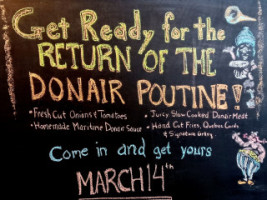 Get Ready for the
RETURN OF THE
DONAIR POUTINE!
• Fresh Cut Onions & Tomatoes
• Juicy Slow Cooked Donair Meat
• Homemade Maritime Donair Sauce
• Hand Cut Fries, Quebec Curds
& Signature Gravy
Come in and get yours
MARCH 14th